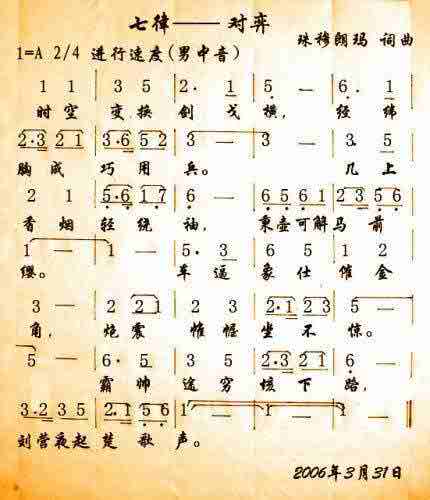 七律——对弈
珠穆朗玛 词曲
1=A 2/4 进行速度(男中音)
1 1 | 3 5 | 2· 1 | 5 — | 6· 1
时空变换剑戈横,经纬
2·3 2 1 | 3·6 5 2 | 3 — | 3 — | 3· 5
胸成巧用兵。几上
2 1 | 5·6 1 7 | 6 — | 6 5 6 1 | 2 3 5 6
香烟轻绕袖,秉壶可解马前
1 — | 1 — | 5· 3 | 6 5 | 1 2
缨。车逼象仕催金
3 — | 2 2 1 | 2 3 | 2·1 2 3 | 5 —
角,炮震帷幄坐不惊。
5 — | 6· 5 | 3 5 | 2·3 2 1 | 6 —
霸帅途穷垓下路,
3·2 3 5 | 2·1 5 6 | 1 — | 1 — | 1 —
刘营夜起楚歌声。
2006年3月31日